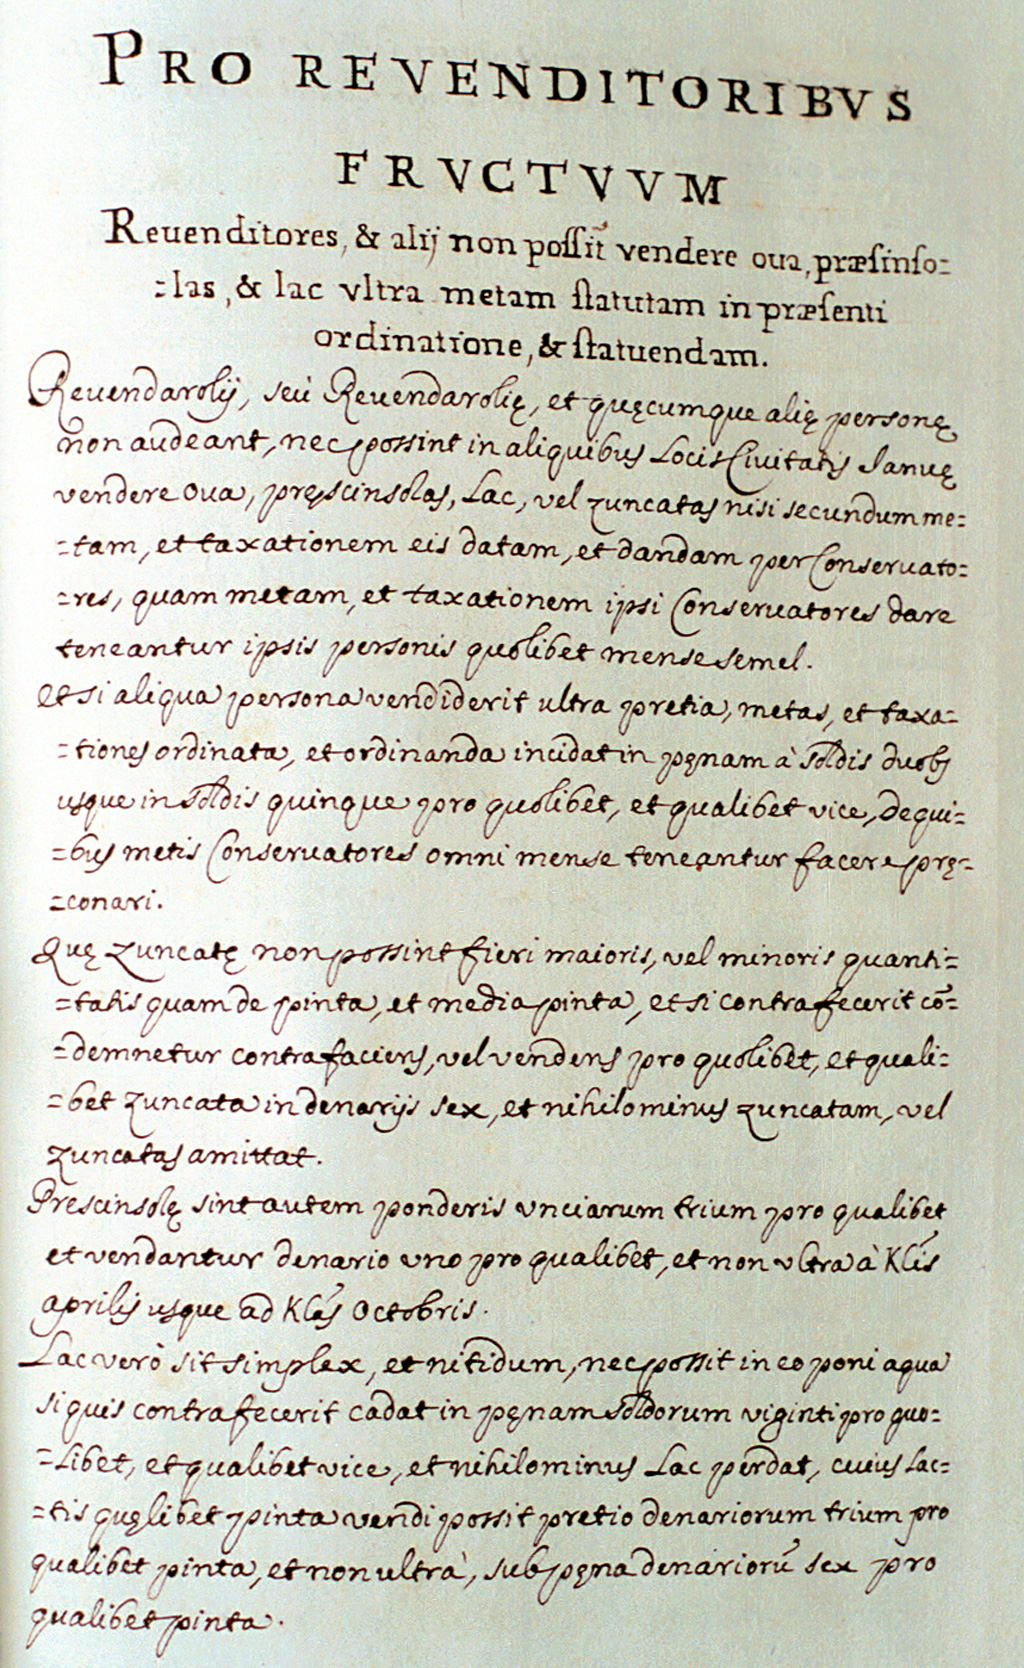 PRO REVENDITORIBVS
FRVCTVVM
Reuenditores, & alij non possūt vendere oua, præsinso:
:las, & lac vltra metam statutam in præsenti
ordinatione, & statuendam.
Reuendarolij, seù Reuendarolię, et quęcumque alię personę
non audeant, nec possint in aliquibus Locis Ciuitatis Ianuę
vendere oua, pręscinsolas, Lac, vel zuncatas nisi secundum me:
:tam, et taxationem eis datam, et dandam per Conseruato:
:res, quam metam, et taxationem ipsi Conseruatores dare
teneantur ipsis personis quolibet mense semel.
et si aliqua persona vendiderit ultra pretia, metas, et taxa:
:tiones ordinata, et ordinanda incidat in pęnam à soldis duobȝ
usque in soldis quinque pro quolibet, et qualibet vice, de qui:
:bus metis Conseruatores omni mense teneantur facere prę:
:conari.
Quę zuncatę non possint fieri maioris, vel minoris quanti:
:tatis quam de pinta, et media pinta, et si contrafecerit cō:
:demnetur contrafaciens, vel vendens pro quolibet, et quali:
:bet zuncata in denarijs sex, et nihilominus zuncatam, vel
zuncatas amittat.
Prescinsolę sint autem ponderis vnciarum trium pro qualibet
et vendantur denario vno pro qualibet, et non vltra à Klis̃
aprilis usque ad Klas̃ Octobris.
Lac verò sit simplex, et nitidum, nec possit in eo poni aqua
si quis contrafecerit cadat in pęnam soldorum viginti pro quo:
:libet, et qualibet vice, et nihilominus Lac perdat, cuius lac:
:tis quęlibet pinta vendi possit pretio denariorum trium pro
qualibet pinta, et non ultrà, sub pęna denariorū sex pro
qualibet pinta.